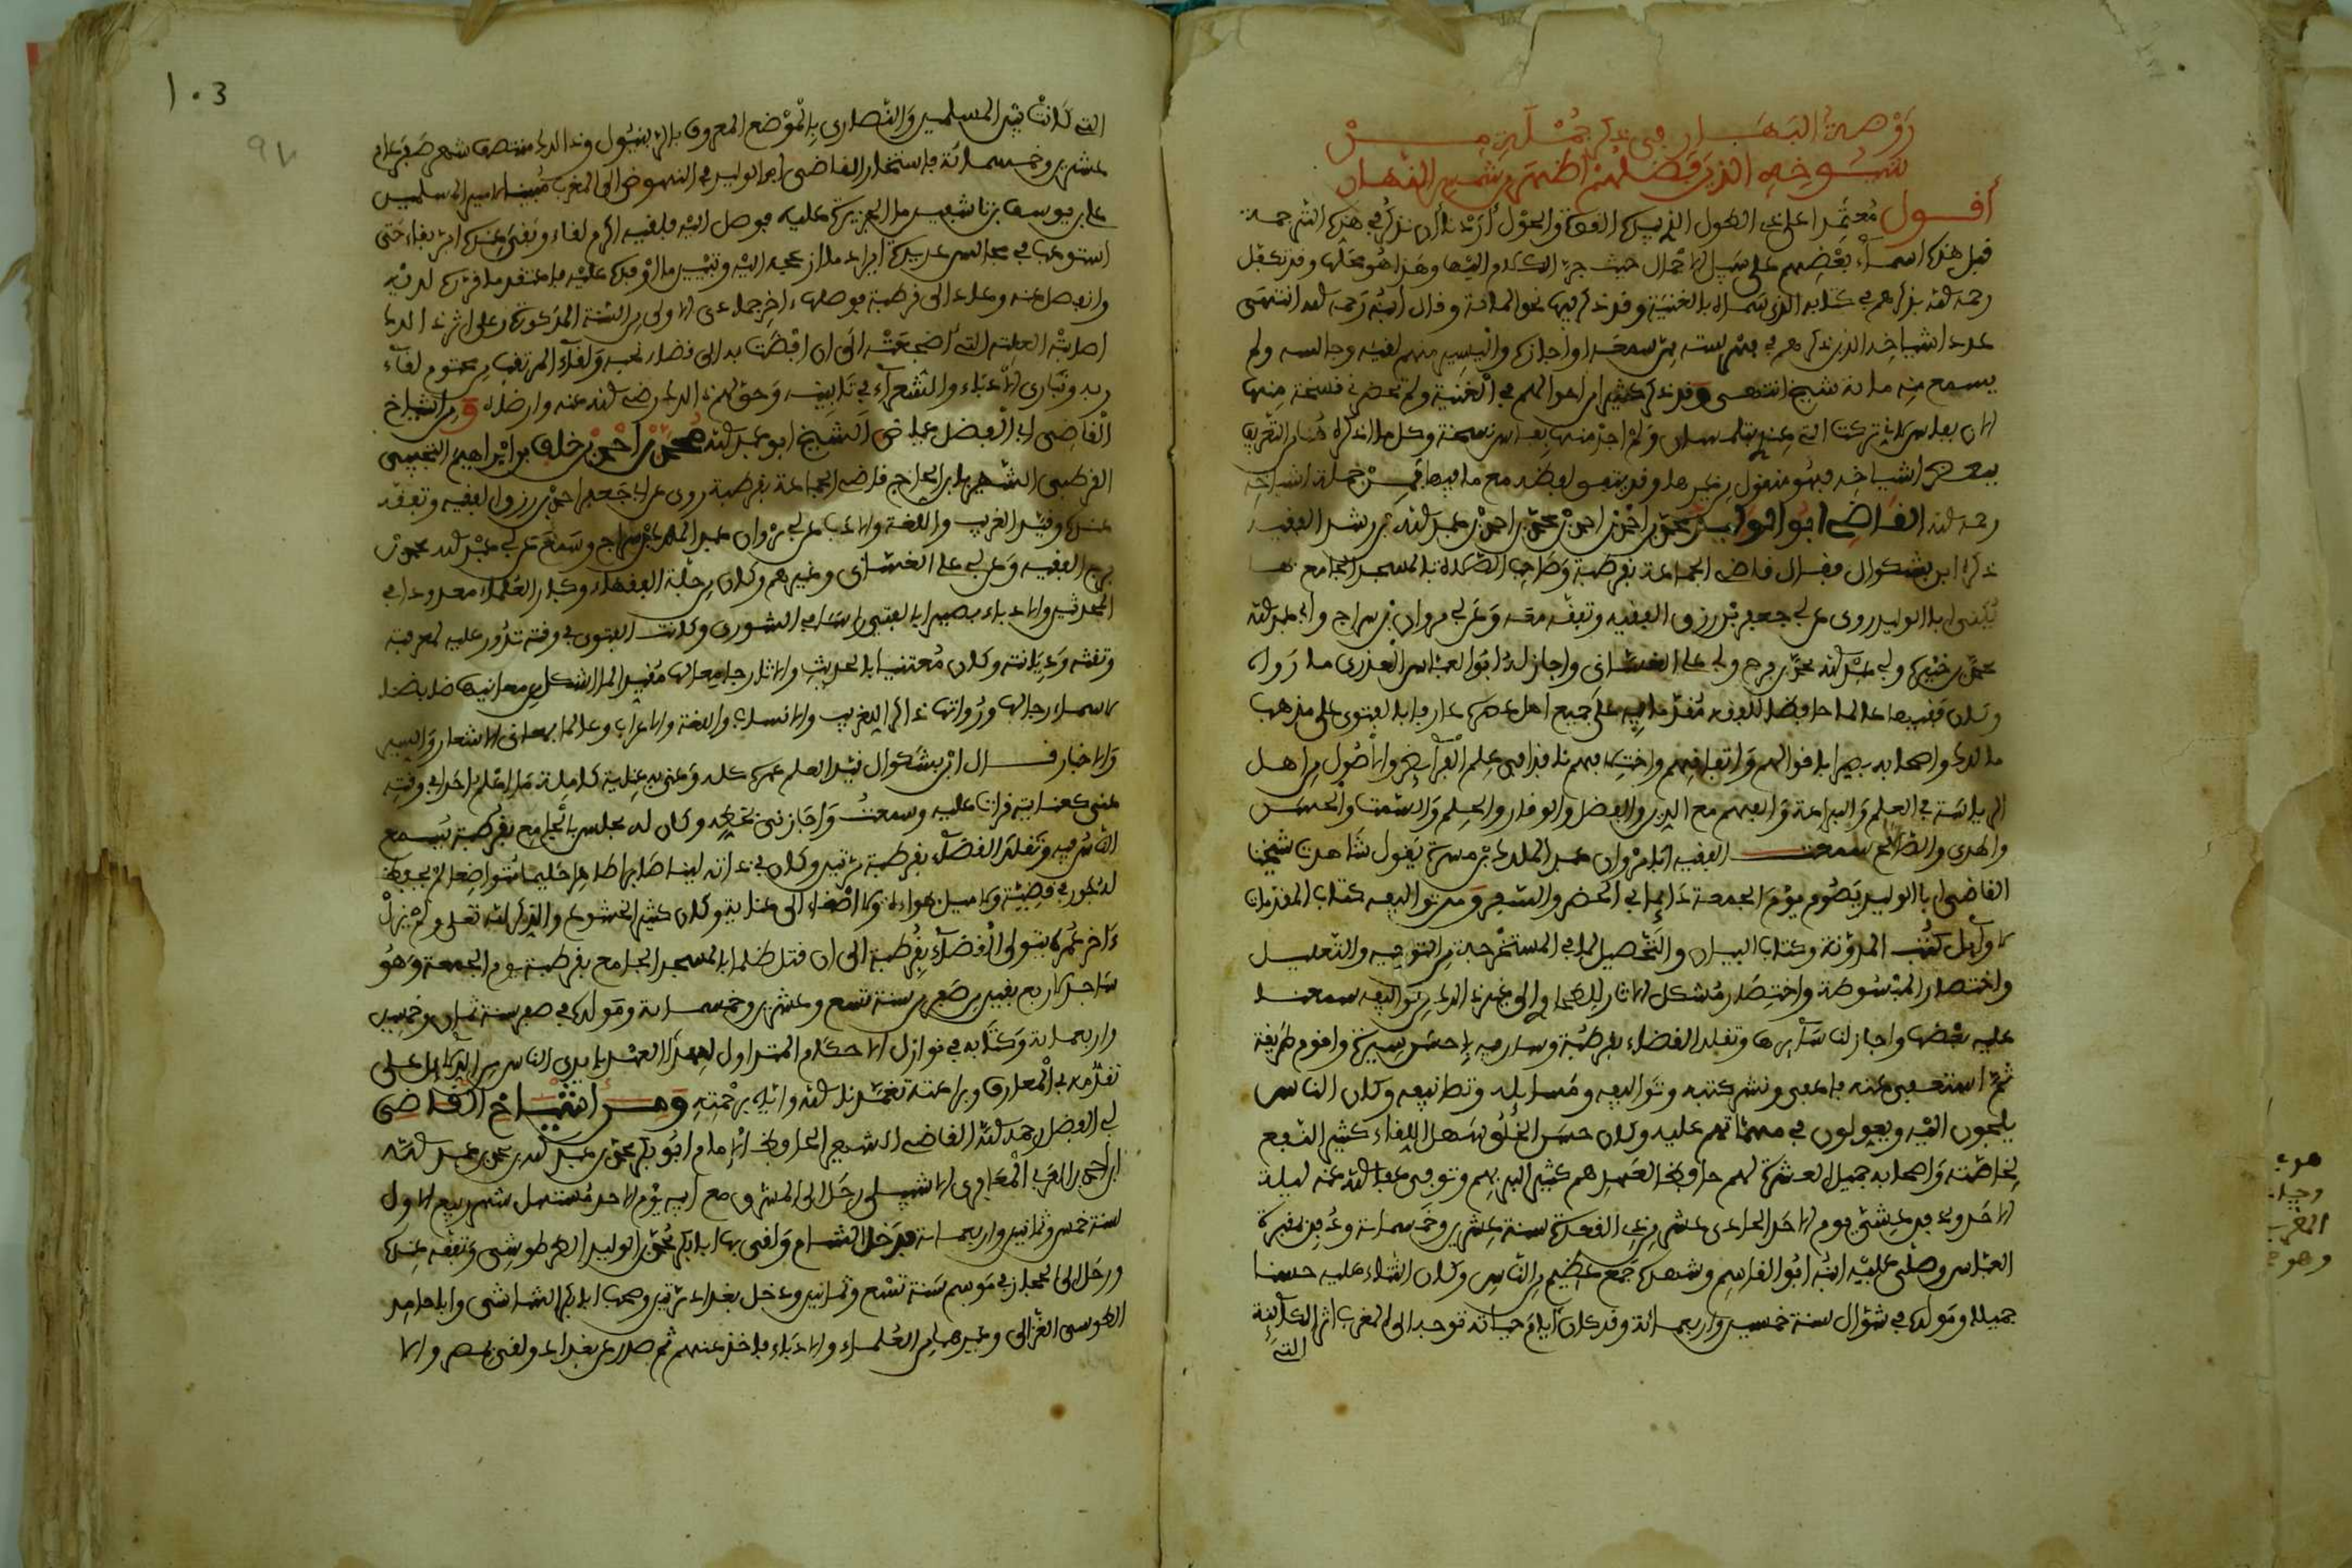 رَوْضَةُ البَهَار في ذكر جُمْلَةٍ مِنْ
شُيُوخِهِ الذين فَضْلُهُمْ أظهر من شمس النهار
أقول مُعتمِدا على ذي الطول الذي بيده القوة والحَوْل أردنا أن نذكر في هذه الترجمة
قبل هذه أسماء بَعْضِهم على سبيل الإجمال حيث جرّ الكلام إليها وهذا هو محلّها وقد تكفّل
رحمه الله بذكرهم في كتابه الذي سماه بالغنية وقد ذكر فيها نحو المائة وقال ابنُه رَحمه الله انتهى
عدد أشياخه الذين ذكرهم في فهرسته ممن سمعه أو أجازه واليسير منهم لقيه وجالسه ولم
يسمع منه مائة شيخ انتهى وقد ذكر كثيرا من أحوالهم في الغنية ولم تحضرني نسخة منها
الآن بفاس لأني تركت التي عندي بتلمسان ولم أجد منها بفاس نسخة وكل ما أذكره هُنا من التعريف
ببعض أشياخه فهو منقول من غيرها وقد يتفق لفظه مع ما فيها فمِنْ جُملة أشياخه
رحمه الله القاضي أبو الوليد محمّد بن أحْمد بن أحمد بن محمّد بن أحمد بن عبد الله بن رشد الفقيه
ذكره ابن بشكوال فقال قاضي الجماعة بقرطبة وصَاحِب الصّلاة بالمسجد الجامع بها
يُكنى أبا الوليد روى عن أبي جعفر بْن رزق الفقيه وتفقّه معه وعن أبي مروان بن سراج وأبي عبد الله
محمّد بن خيرة وأبي عبْد الله محمّد بن فرج وأبي علي الغسّاني وأجاز لهُ أبو العبّاس العُذري ما رَواه
وكان فقيها عالما حافظا للفقه مُقدّما فيه على جميع أهل عصره عارفا بالفتوى على مذهب
مالك وأصحابه بصيرا بأقوالهم واتفاقهم واختلافهم نافذا في عِلم الفرائض والأصُول من أهل
الرياسَة في العلم والبراعة والفهم مع الدين والفضل والوقار والحِلم والسّمت والحسن
والهدي والصّالح سمعت الفقيه أبا مروان عبد الملك بْن مسرة يَقول شاهدت شيخنا
القاضي أبا الوليد يَصُوم يوْمَ الجمعة دَائما في الحضر والسّفر ومن تواليفه كتاب المقدمات
لأوائل كتُب المدوّنة وكتاب البيان والتّحصيل لما في المستخرجة من التوجيه والتعليل
واختصار المبْسُوطة واختصَار مُشكل الآثار للطحاوي إلى غير ذلك من تواليفه سمعنا
عليه بعْضها وأجاز لنا سَائرها وتقلد القضاء بقرطُبة وسار فيه بأحسَن سيرة وأقوم طَريقة
ثمّ استعفى عنه فأعفي ونشر كتبه وتواليفه ومَسائله وتصانيفه وكان الناس
يلجون إليْه ويعولون في مهمّاتهم عليه وكان حسَن الخُلُق سَهل اللقاء كثير النّفع
لخاصّته وأصحابه جميل العشرة لهم حافظا لعَهدهم كثير البر بهم وتوفي عفا الله عنه ليلة
الأحَد ودفن عشيّ يوم الأحَد الحادي عشر من ذي القعدة سنة عشرين وخمسمائة ودُفن بمقبرة
العبّاس وصلّى عليْه ابنُه أبُو القاسم وشهده جَمع عظيم من النّاس وكان الثناء عليه حسنا
جميلا ومَولده في شوّال سنة خمسين وأربعمائة وقد كان أيام حياته توجه إلى المغرب إثر الكائنة
التي
103
97
التي كانت بيْن المسلمين والنّصارى بالموْضع المعروف بالرينيُول وذلك منتصف شهر صَفر عام
عشرين وخمسمائة فاستخار القاضي أبو الوليد في النهوض إلى المغرب مُبينا لأمير المسلمين
علي بن يوسف بن تاشفين ما الجزيرة عليه فوصل إليْه فلقيه أكرم لقاء وبَقي عنده أبرّ بقاء حَتى
استوعب في مجالس عديدة إيراد ما أزعجه إليْه وتبْيين ما أوفده عليْه فاعتقد ما قرّره لديْه
وانفصل عنه وعاد إلى قرطبة فوصلها آخر جمادى الأولى من السّنة المذكورة وعلى إثر ذلك
أصابتْه العلة التي أضجعَتْه إلى أن أفْضَت به إلى قضاء نحبه ولقاء المرتقب من محتوم لقاء
ربه وتبارى الأدباء والشّعراء في تأبينه وحقّ لهم ذلك رضي الله عنه وأرضاه ومن أشياخ
القاضي أبي الفضل عياض الشيخ أبو عبد الله محمّد بن أحْمد بن خلف بن إبْراهيم التجيبي
القرطبي الشهير بابن الحاج قاضي الجماعة بقرطبة روى عن أبي جَعفر أحمد بْن رزق الفقيه وتفقه
عندَه وقيّد الغريب واللغة والأدب على أبي مرْوان عبد الملك بْن سراج وسَمع من أبي عبْد الله محمّد بْن
فرج الفقيه وعن أبي علي الغسّاني وغيرهم وكان من جلّة الفقهاء وكبار العُلماء معدودا في
المحدثين والأدباء بصيرا بالفتيا رأسا في الشورى وكانت الفتوى في وقته تدُور عليه لمعرفته
وثقته ودِيَانته وكان مُعتنيا بالحديث والآثار جامعا لها مُقيدا لما أشكل من معانيها ضابطا
لأسماء رجالها ورُواتها ذاكرا للغريب والأنساب واللغة والإعراب وعالما بمعاني الأشعار والسير
والأخبار قال ابْن بشكوال قيّد العلم عمره كله وعُني به عناية كاملة ما أعلم أحدا في وقته
عني كعنايته قرأت عليه وسمعتُ وأجاز لي بخطه وكان له مجلس بالجامع بقرطبة يسمع
النّاس فيه وتقلد القضاء بقرطبة مرّتين وكان في ذاته لينا صَابرا طاهرا حليما مُتواضعا لم يحفظ
له جور في قضيّة ولا ميل بهواده ولا إصْغاء إلى عناية وكان كثير الخشوع والذكر لله تعلى ولم يزلْ
آخر عُمره يتولى القضاء بقُرطبة إلى أن قتل ظلما بالمسجد الجامع بقرطبة يوم الجمعة وهُو
سَاجد لأربع بقين من صَفر من سنة تسع وعشرين وخمسمائة ومَولده في صفر سنة ثمان وخمسين
وأربعمائة وكتابه في نوازل الأحكام المتداول لهذا العهْد بأيدي الناس من الدلائل على
تقدّمه في المعارف وبراعته تغمّدنا الله وإياه برحْمته ومن أشْيَاخ القاضي
أبي الفضل رحمه الله القاضي الشهير الحافظ الإمام أبُو بكر محمّد بن عبد الله بن محمد بن عبد الله
ابن أحمد بن العَربي المعَافري الإشبيلي رحَل إلى المشرق مع أبيه يوْم الأحد مُستهل شهر ربيع الأول
سنة خمس وثمانين وأربعمائة فدَخل الشام ولقي بها أبا بكر محمّد بن الوليد الطرطوشي وتفقّه عنده
ورحَل إلى الحجاز في مَوسم سَنة تسْع وثمانين ودخل بغداد مرّتين وصحب أبا بكر الشاشي وأبا حامد
الطوسي الغزالي وغيرهما من العُلماء والأدباء فأخذ عنهم ثم صدر عن بغداد ولقي بمصر والإ